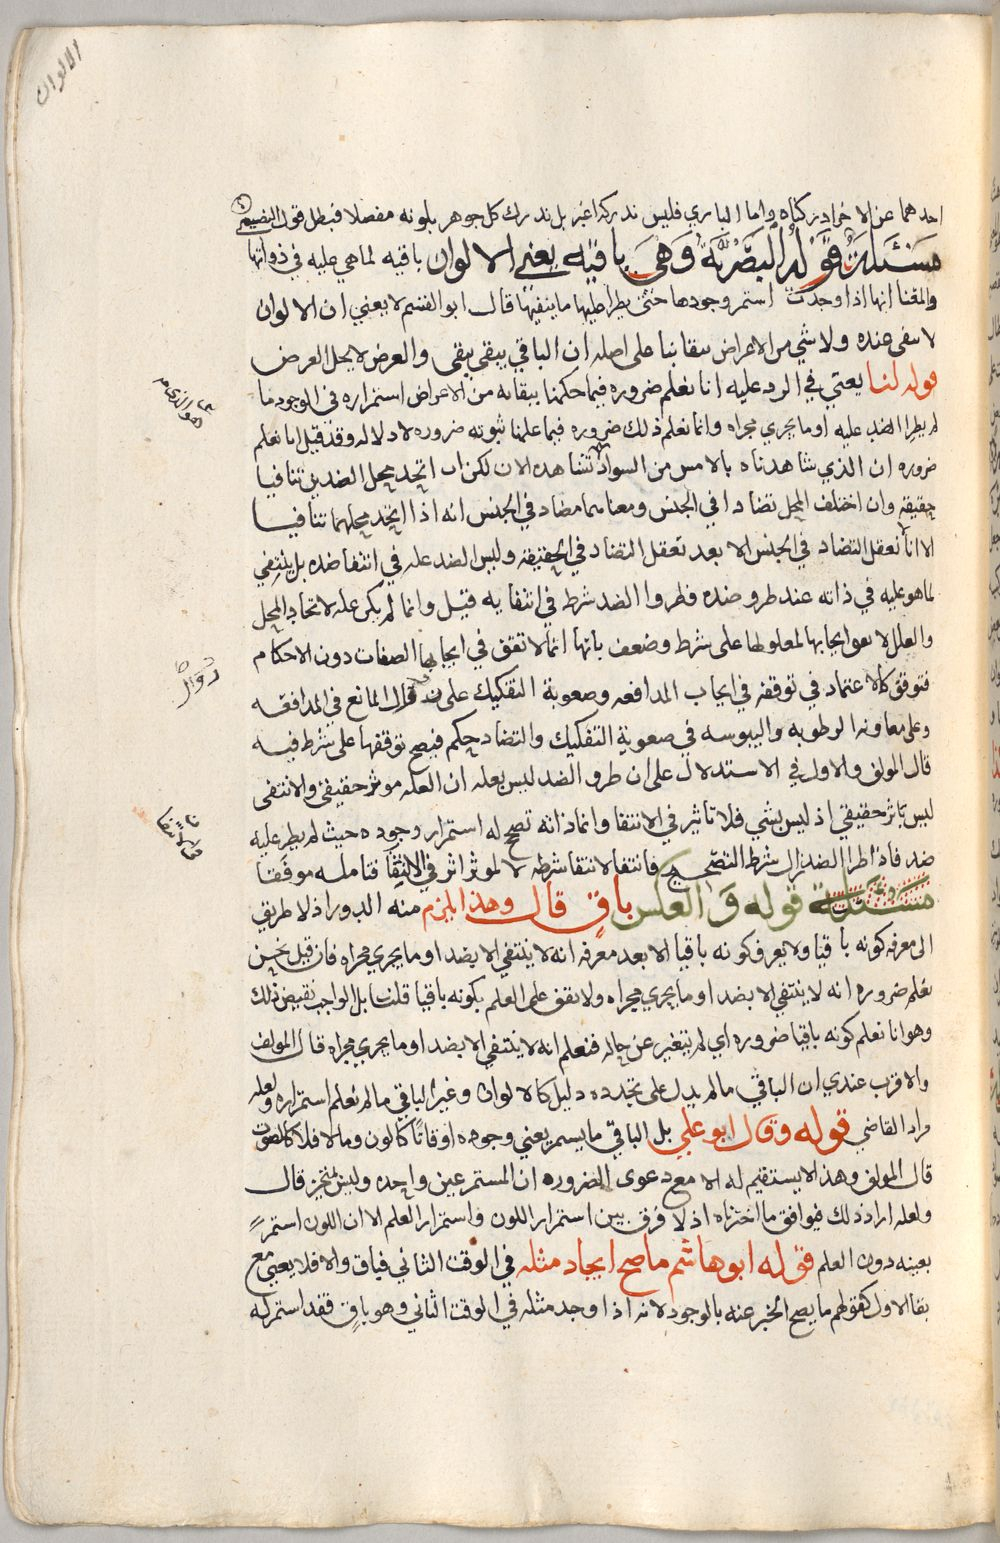 الالوان
احدهما عن الاخر ادركناه واما الباري فليس ندركه اغبر بل ندرك كل جوهر بلونه مفصلا فبطل قول الخصم
مسئلة قوله البصرية وهي باقيه يعني الالوان باقيه لما هي عليه في ذواتها
والمعنا انها اذا وجدت استمر وجودها حتى يطرا عليها ما ينفيها قال ابو القسم لا يعني ان الالوان
لا تبقى عنده ولا شي من الاعراض ببقا بنا على اصله ان الباقي يبقى ببقى والعرض لا يحل العرض
قوله لنا يعني في الرد عليه انا نعلم ضروره فيما حكمنا ببقائه من الاعراض استمراره في الوجود ما
لم يطرا الضد عليه او ما يجري مجراه وانما نعلم ذلك ضروره فيما علمنا ثبوته ضروره لا دلاله وقد قيل انا نعلم
ضروره ان الذي شاهدناه بالامس من السواد نشاهده الان لكن ان اتحد محل الضدين تنافيا
حقيقة وان اختلف المحل تضادا في الجنس ومعنا هما مضاد في الجنس انه اذا اتحد محلهما تنافيا
الا انا نعقل التضاد في الجنس الا بعد تعقل التضاد في الحقيقة وليس الضد عله في انتفا ضده بل ينتفي
لما هو عليه في ذاته عند طرو ضده فطروا الضد شرط في انتفايه قيل وانما لم يكن عله لاتحاد المحل
والعلل لا يقف ايجابها لمعلولها على شرط وضعف بانها انما لا تقف في ايجابها الصفات دون الاحكام
فتوقف كالاعتماد في توقفه في ايجاب المدافعه وصعوبة التفكيك على زوال المانع في المدافعه
وعلى معاونه الرطوبه واليبوسه في صعوبة التفكيك والتضاد حكم فيصح توقفها على شرط فيه
قال المولف والاولى في الاستدلال على ان طرو الضد ليس بعله ان العله موثر حقيقي والانتفى
ليس بتاثر حقيقي اذ ليس بشي فلا تاثير في الانتفا وانما ذاته تصح له استمرار وجوده حيث لم يطر عليه
ضد فاذا طرا الضد زال شرط التصحيح فانتفا لانتفا شرطه لا لموثر اثر في الانتفا فتامله موفقا
مسئلة قوله والعكس باق قال وهذا يلزم منه الدور اذ لا طريق
الى معرفه كونه باقيا ولا يعرف كونه باقيا الا بعد معرفه انه لا ينتفي الا بضد او ما يجري مجراه فان قيل نحن
نعلم ضروره انه لا ينتفي الا بضد او ما يجري مجراه ولا يقف على العلم بكونه باقيا قلنا بل الواجب نقيض ذلك
وهو انا نعلم كونه باقيا ضروره اي لم يتغير عن حاله فنعلم انه لا ينتفي الا بضد او ما يجري مجراه قال المولف
والاقرب عندي ان الباقي ما لم يدل على تجدده دليل كالالوان وغير الباقي ما لم نعلم استمراره ولعله
مراد القاضي قوله وقال ابو علي بل الباقي ما يستمر يعني وجوده اوقاتا كاللون وما لا فلا كالصوت
قال المولف وهذا لا يستقيم له الا مع دعوى الضروره ان المستمر عين واحده وليس بتحيز قال
ولعله اراد ذلك فيوافق ما اخترناه اذ لا فرق بين استمرار اللون واستمرار العلم الا ان اللون استمر
بعينه دون العلم قوله ابو هاشم ما صح ايجاد مثله في الوقت الثاني فباق والا فلا يعني مع
بقا الاول كقولهم ما يصح الخبر عنه بالوجود لانه اذا وجد مثله في الوقت الثاني وهو باق فقد استمر له